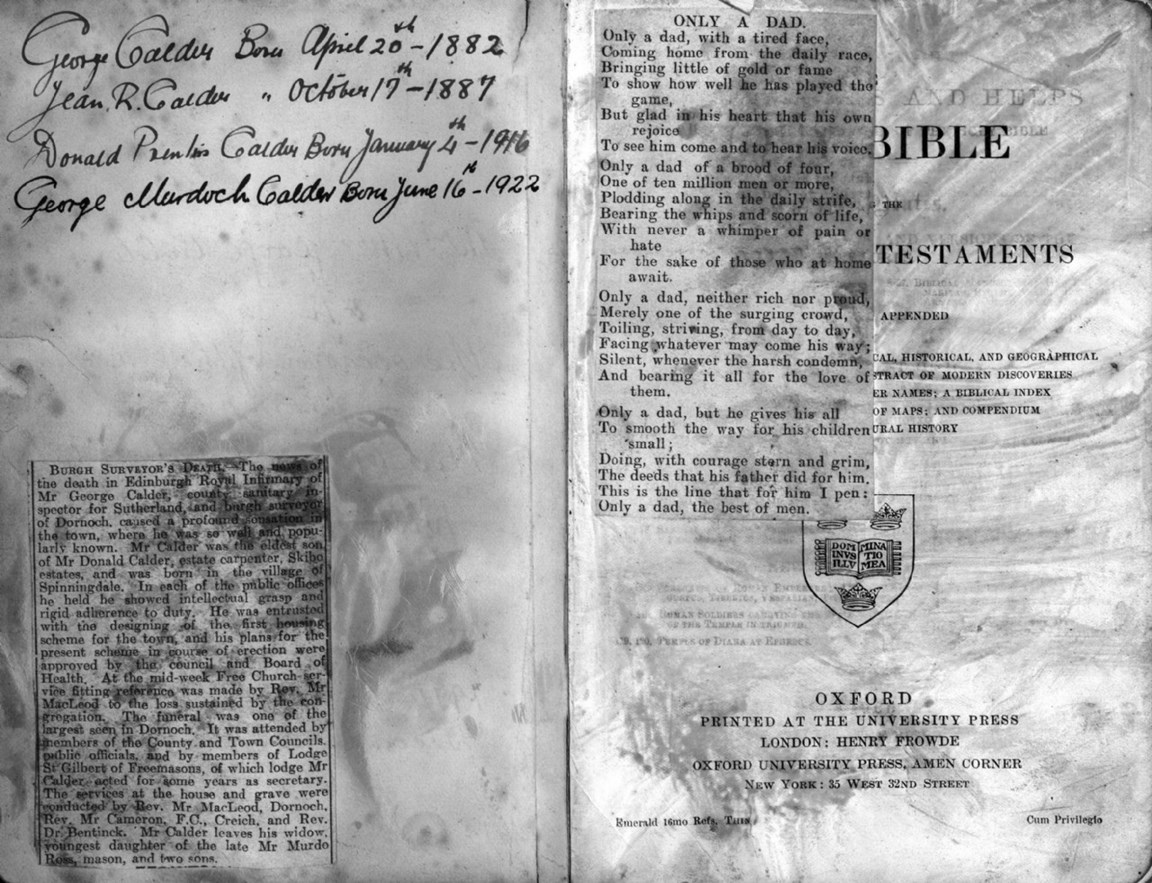 George Calder Born April 20th - 1882
Jean. R. Calder " October 17th - 1887
Donald Prentis Calder Born January 4th - 1916
George Murdoch Calder Born June 16th - 1922
BURGH SURVEYOR'S DEATH.—The news of
the death in Edinburgh Royal Infirmary of
Mr George Calder, county sanitary in-
spector for Sutherland, and burgh surveyor
of Dornoch, caused a profound sensation in
the town, where he was so well and popu-
larly known. Mr Calder was the eldest son
of Mr Donald Calder, estate carpenter, Skibo
estates, and was born in the village of
Spinningdale. In each of the public offices
he held he showed intellectual grasp and
rigid adherence to duty. He was entrusted
with the designing of the first housing
scheme for the town, and his plans for the
present scheme in course of erection were
approved by the council and Board of
Health. At the mid-week Free Church ser-
vice fitting reference was made by Rev. Mr
MacLeod to the loss sustained by the con-
gregation. The funeral was one of the
largest seen in Dornoch. It was attended by
members of the County and Town Councils,
public officials, and by members of Lodge
St Gilbert of Freemasons, of which lodge Mr
Calder acted for some years as secretary.
The services at the house and grave were
conducted by Rev. Mr MacLeod, Dornoch,
Rev. Mr Cameron, F.C., Creich, and Rev.
Dr Bentinck. Mr Calder leaves his widow,
youngest daughter of the late Mr Murdo
Ross, mason, and two sons.
ONLY A DAD.
Only a dad, with a tired face,
Coming home from the daily race,
Bringing little of gold or fame
To show how well he has played the
game,
But glad in his heart that his own
rejoice
To see him come and to hear his voice.
Only a dad of a brood of four,
One of ten million men or more,
Plodding along in the daily strife,
Bearing the whips and scorn of life,
With never a whimper of pain or
hate
For the sake of those who at home
await.
Only a dad, neither rich nor proud,
Merely one of the surging crowd,
Toiling, striving, from day to day,
Facing whatever may come his way;
Silent, whenever the harsh condemn,
And bearing it all for the love of
them.
Only a dad, but he gives his all
To smooth the way for his children
small;
Doing, with courage stern and grim,
The deeds that his father did for him.
This is the line that for him I pen:
Only a dad, the best of men.
AND HELPS
BIBLE
THE
TESTAMENTS
APPENDED
CAL, HISTORICAL, AND GEOGRAPHICAL
STRACT OF MODERN DISCOVERIES
ER NAMES; A BIBLICAL INDEX
OF MAPS; AND COMPENDIUM
URAL HISTORY
DOM MINA
INVS TIO
ILLV MEA
OXFORD
PRINTED AT THE UNIVERSITY PRESS
LONDON: HENRY FROWDE
OXFORD UNIVERSITY PRESS, AMEN CORNER
NEW YORK: 35 WEST 32ND STREET
Emerald 16mo Refs. THIN
Cum Privilegio